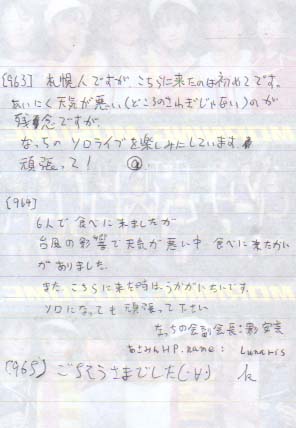 [963] 札幌人ですが、こちらに来たのは初めてです。
あいにく天気が悪い(どころのさわぎじゃない)のが
残念ですが、
なっちのソロライブを楽しみにしています。
頑張って!
[964]
6人で食べに来ましたが
台風の影響で天気が悪い中 食べに来たかい
がありました。
また、こちらに来た時は、うかがいたいです。
ソロになっても頑張って下さい
なっちの会副会長:
あさみんHP.name: Lunaris
[965] ごちそうさまでした(・∀・) k